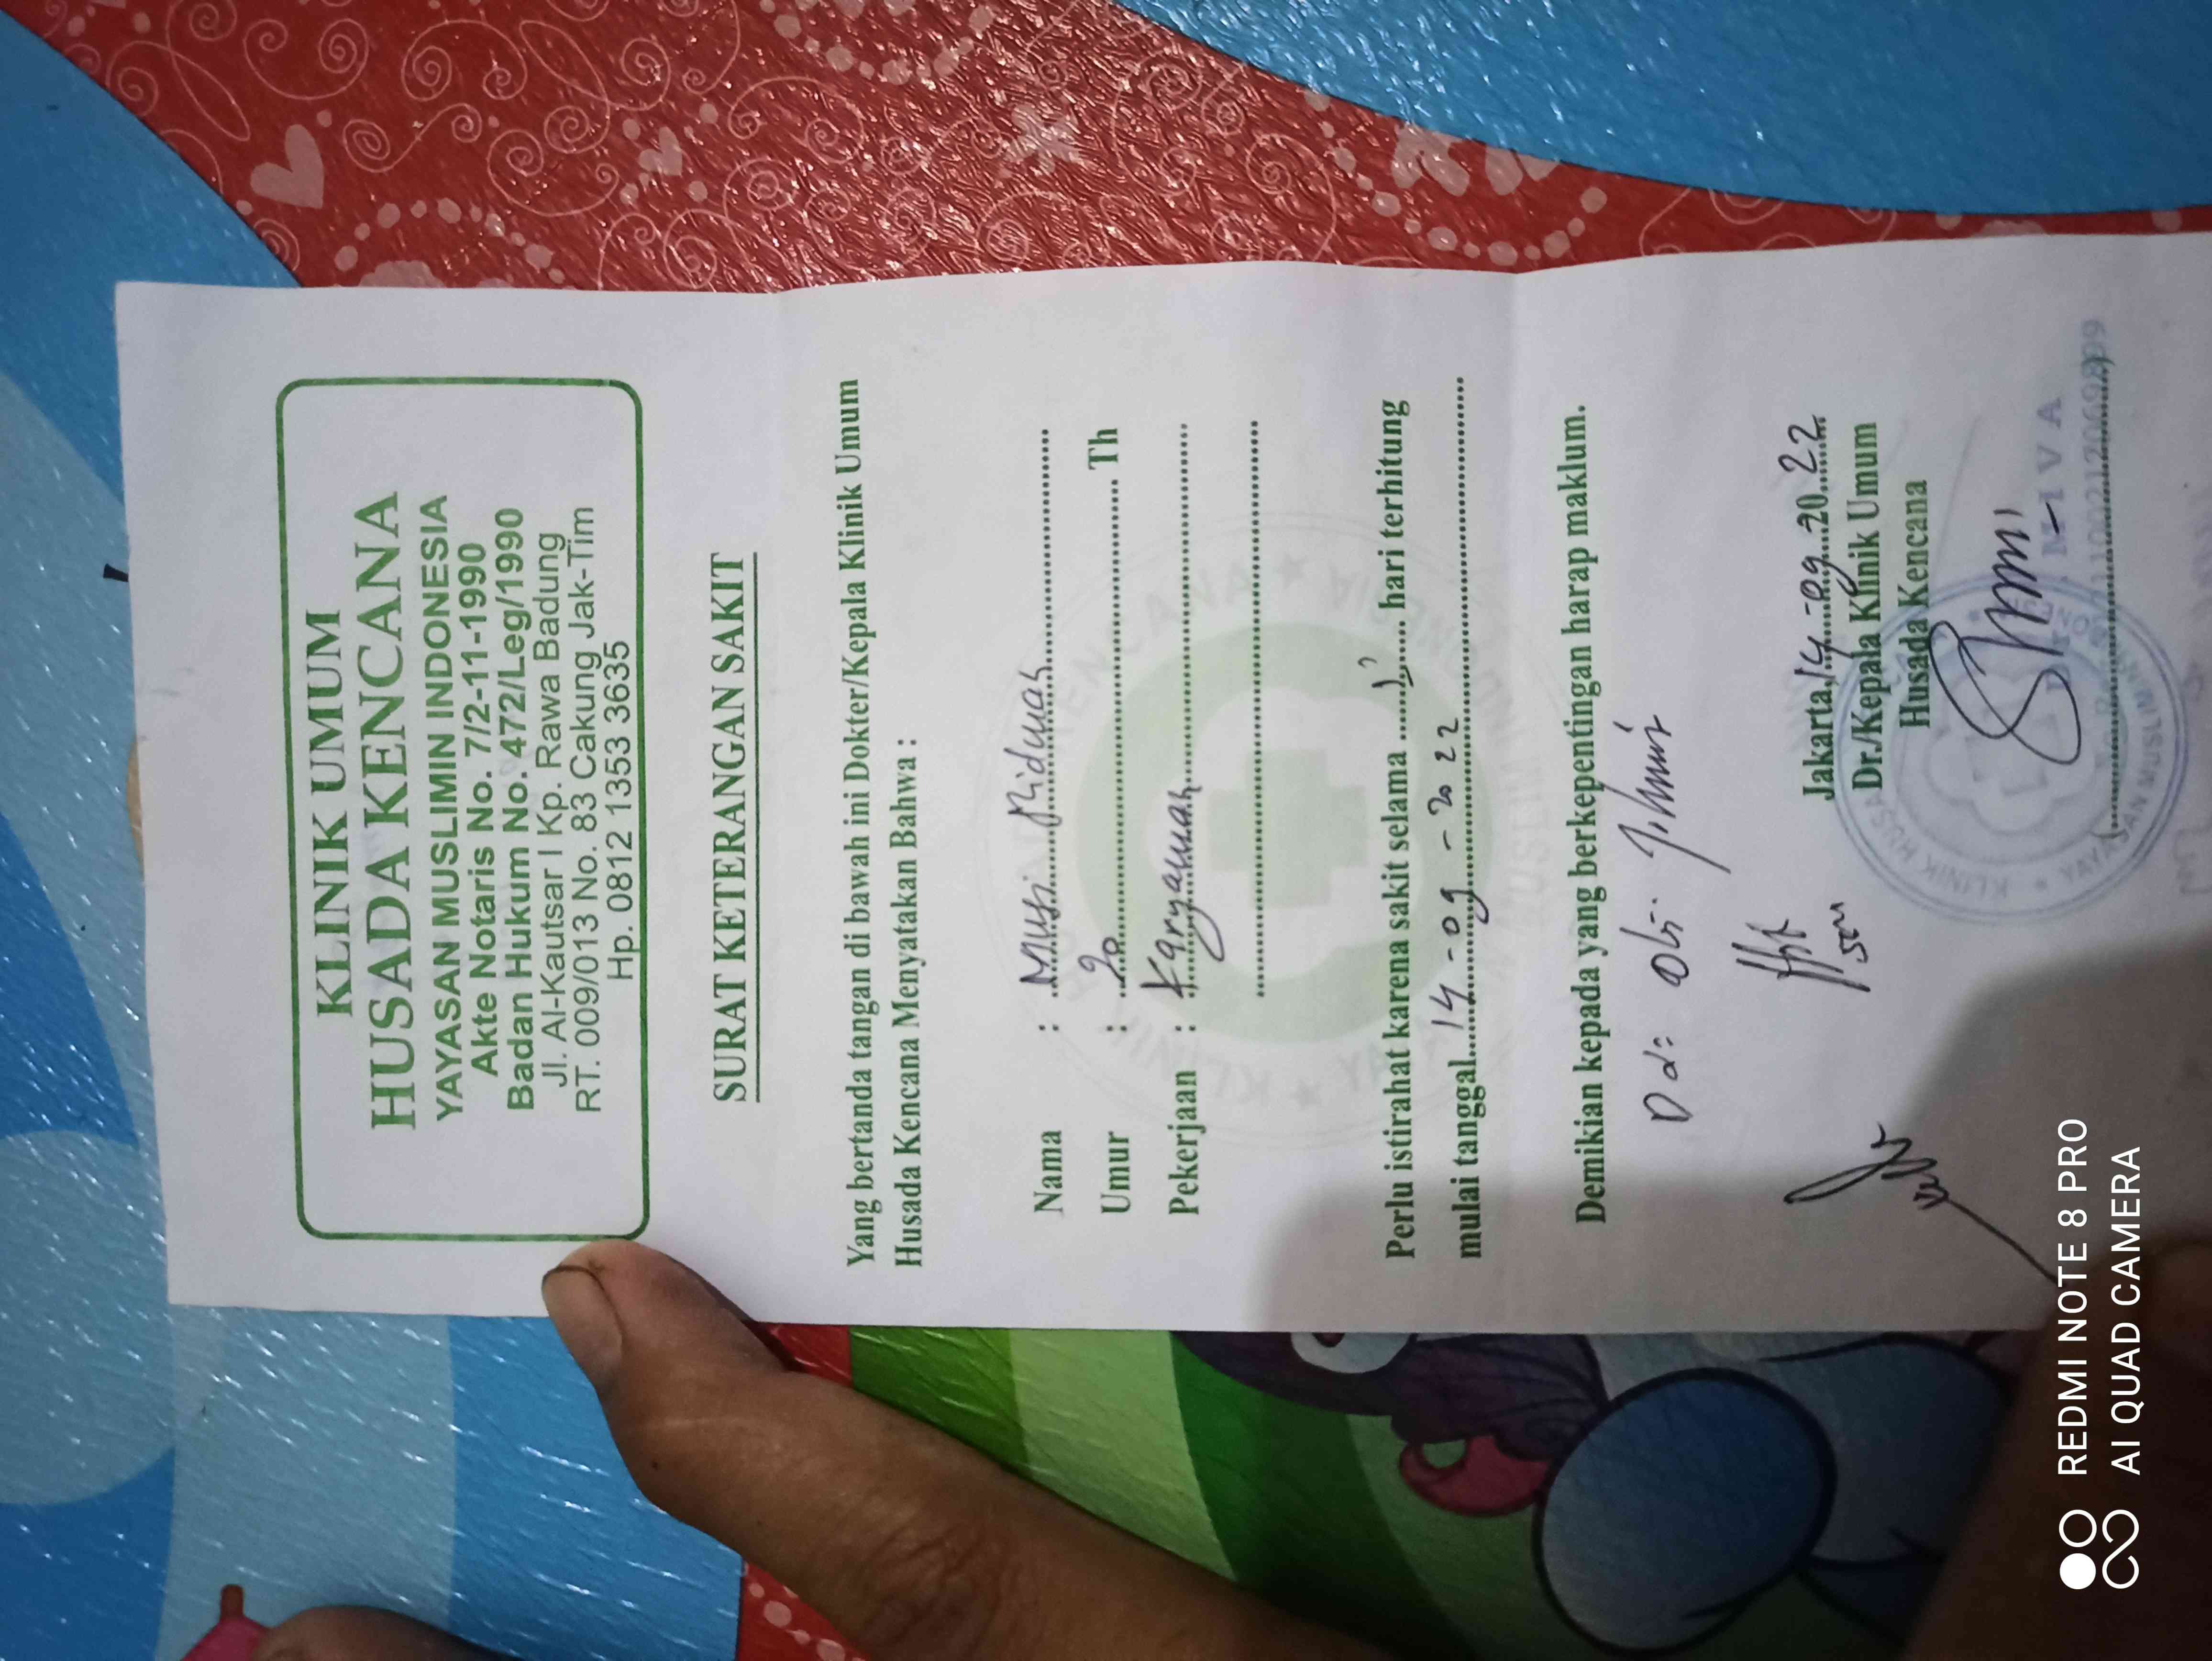 KLINIK UMUM
HUSADA KENCANA
YAYASAN MUSLIMIN INDONESIA
Akte Notaris No. 7/2-11-1990
Badan Hukum No. 472/Leg/1990
Jl. Al-Kautsar I Kp. Rawa Badung
RT. 009/013 No. 83 Cakung Jak-Tim
Hp. 0812 1353 3635
SURAT KETERANGAN SAKIT
Yang bertanda tangan di bawah ini Dokter/Kepala Klinik Umum
Husada Kencana Menyatakan Bahwa :
Nama :
Umur : 20 Th
Pekerjaan : Karyawan
Perlu istirahat karena sakit selama hari terhitung
mulai tanggal 14 - 09 - 2022
Demikian kepada yang berkepentingan harap maklum.
Jakarta, 14 - 09 2022
Dr./Kepala Klinik Umum
Husada Kencana
REDMI NOTE 8 PRO
AI QUAD CAMERA